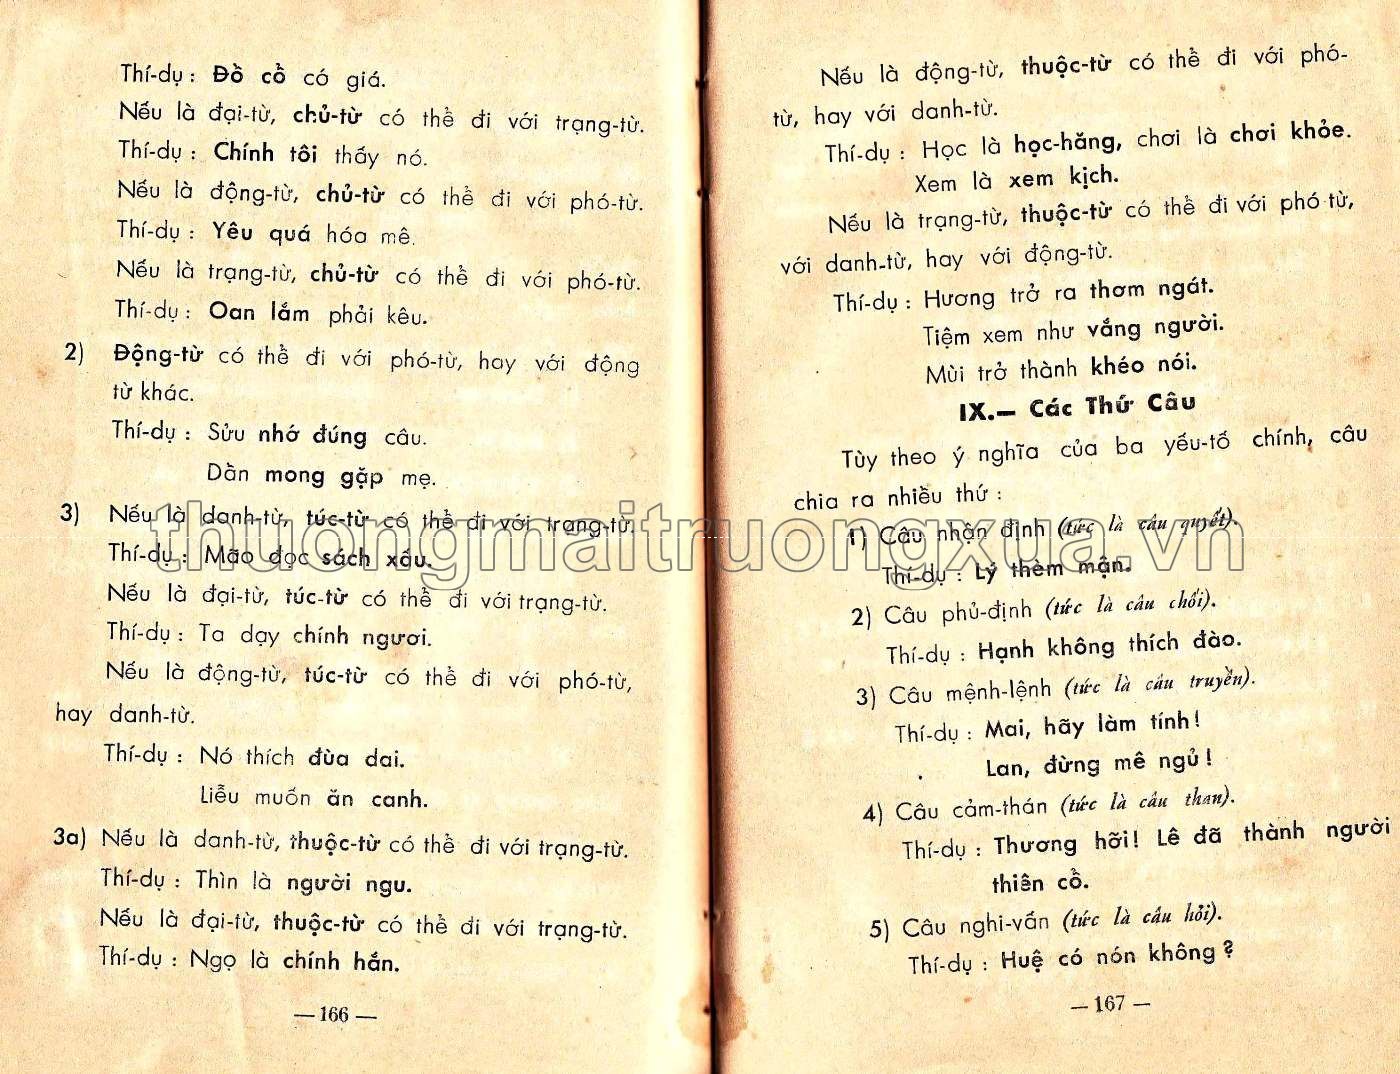 Thí-dụ : Đồ cổ có giá.
Nếu là đại-từ, chủ-từ có thể đi với trạng-từ.
Thí-dụ : Chính tôi thấy nó.
Nếu là động-từ, chủ-từ có thể đi với phó-từ.
Thí-dụ : Yêu quá hóa mê.
Nếu là trạng-từ, chủ-từ có thể đi với phó-từ.
Thí-dụ : Oan lắm phải kêu.
2) Động-từ có thể đi với phó-từ, hay với động
từ khác.
Thí-dụ : Sửu nhớ đúng câu.
Dần mong gặp mẹ.
3) Nếu là danh-từ, túc-từ có thể đi với trạng-từ.
Thí-dụ : Mão đọc sách xấu.
Nếu là đại-từ, túc-từ có thể đi với trạng-từ.
Thí-dụ : Ta dạy chính ngươi.
Nếu là động-từ, túc-từ có thể đi với phó-từ,
hay danh-từ.
Thí-dụ : Nó thích đùa dai.
Liễu muốn ăn canh.
3a) Nếu là danh-từ, thuộc-từ có thể đi với trạng-từ.
Thí-dụ : Thìn là người ngu.
Nếu là đại-từ, thuộc-từ có thể đi với trạng-từ.
Thí-dụ : Ngọ là chính hắn.
— 166 —
Nếu là động-từ, thuộc-từ có thể đi với phó-
từ, hay với danh-từ.
Thí-dụ : Học là học-hăng, chơi là chơi khỏe.
Xem là xem kịch.
Nếu là trạng-từ, thuộc-từ có thể đi với phó từ,
với danh-từ, hay với động-từ.
Thí-dụ : Hương trở ra thơm ngát.
Tiệm xem như vắng người.
Mùi trở thành khéo nói.
IX.— Các Thứ Câu
Tùy theo ý nghĩa của ba yếu-tố chính, câu
chia ra nhiều thứ :
1) Câu nhận định (tức là câu quyết).
Thí-dụ : Lý thèm mận.
2) Câu phủ-định (tức là câu chối).
Thí-dụ : Hạnh không thích đào.
3) Câu mệnh-lệnh (tức là câu truyền).
Thí-dụ : Mai, hãy làm tính !
Lan, đừng mê ngủ !
4) Câu cảm-thán (tức là câu than).
Thí-dụ : Thương hỡi ! Lê đã thành người
thiên cổ.
5) Câu nghi-vấn (tức là câu hỏi).
Thí-dụ : Huệ có nón không ?
— 167 —
thuongmaitruongxua.vn